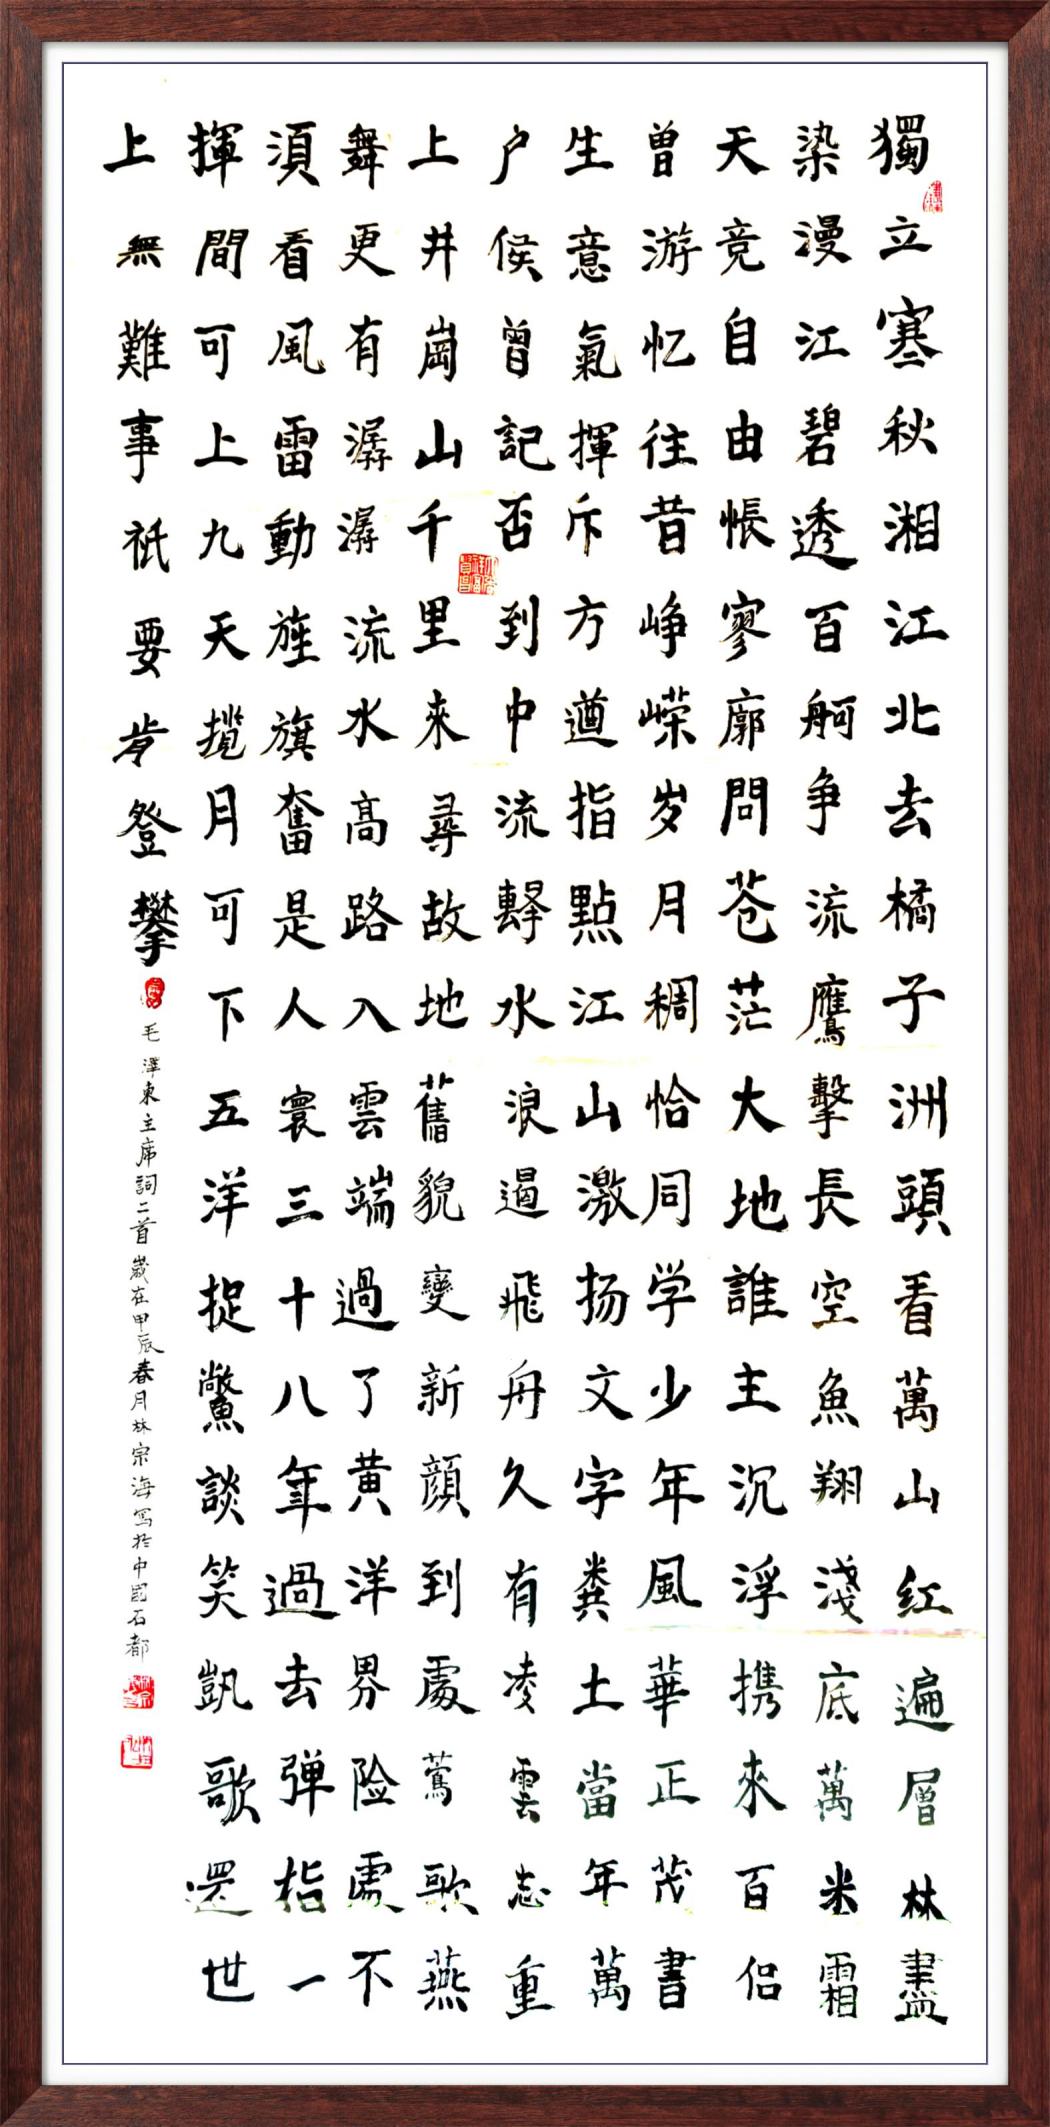 獨立寒秋湘江北去橘子洲頭看萬山红遍層林盡
染漫江碧透百舸争流鷹擊長空魚翔淺底萬米霜
天竞自由悵寥廓問苍茫大地誰主沉浮携來百侣
曾游忆往昔峥嵘岁月稠恰同学少年風華正茂書
生意氣揮斥方遒指點江山激扬文字粪土當年萬
户侯曾記否到中流擊水浪遏飛舟久有凌雲志重
上井崗山千里來尋故地舊貌變新顔到處莺歌燕
舞更有潺潺流水高路入雲端過了黄洋界险處不
須看風雷動旌旗奮是人寰三十八年過去弹指一
揮間可上九天揽月可下五洋捉鱉談笑凱歌還世
上無難事祇要肯登攀
毛澤東主席詞二首歲在甲辰春月林宗海寫於中國石都